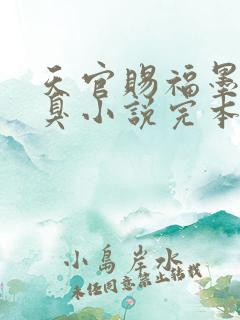 天官赐福墨
具小说完本
小岛岸水
未经同意禁止转载